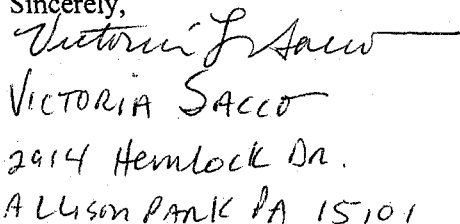 Sincerely,
Victoria L. Sacco
VICTORIA SACCO
2914 Hemlock DR.
ALLISON PARK PA 15101